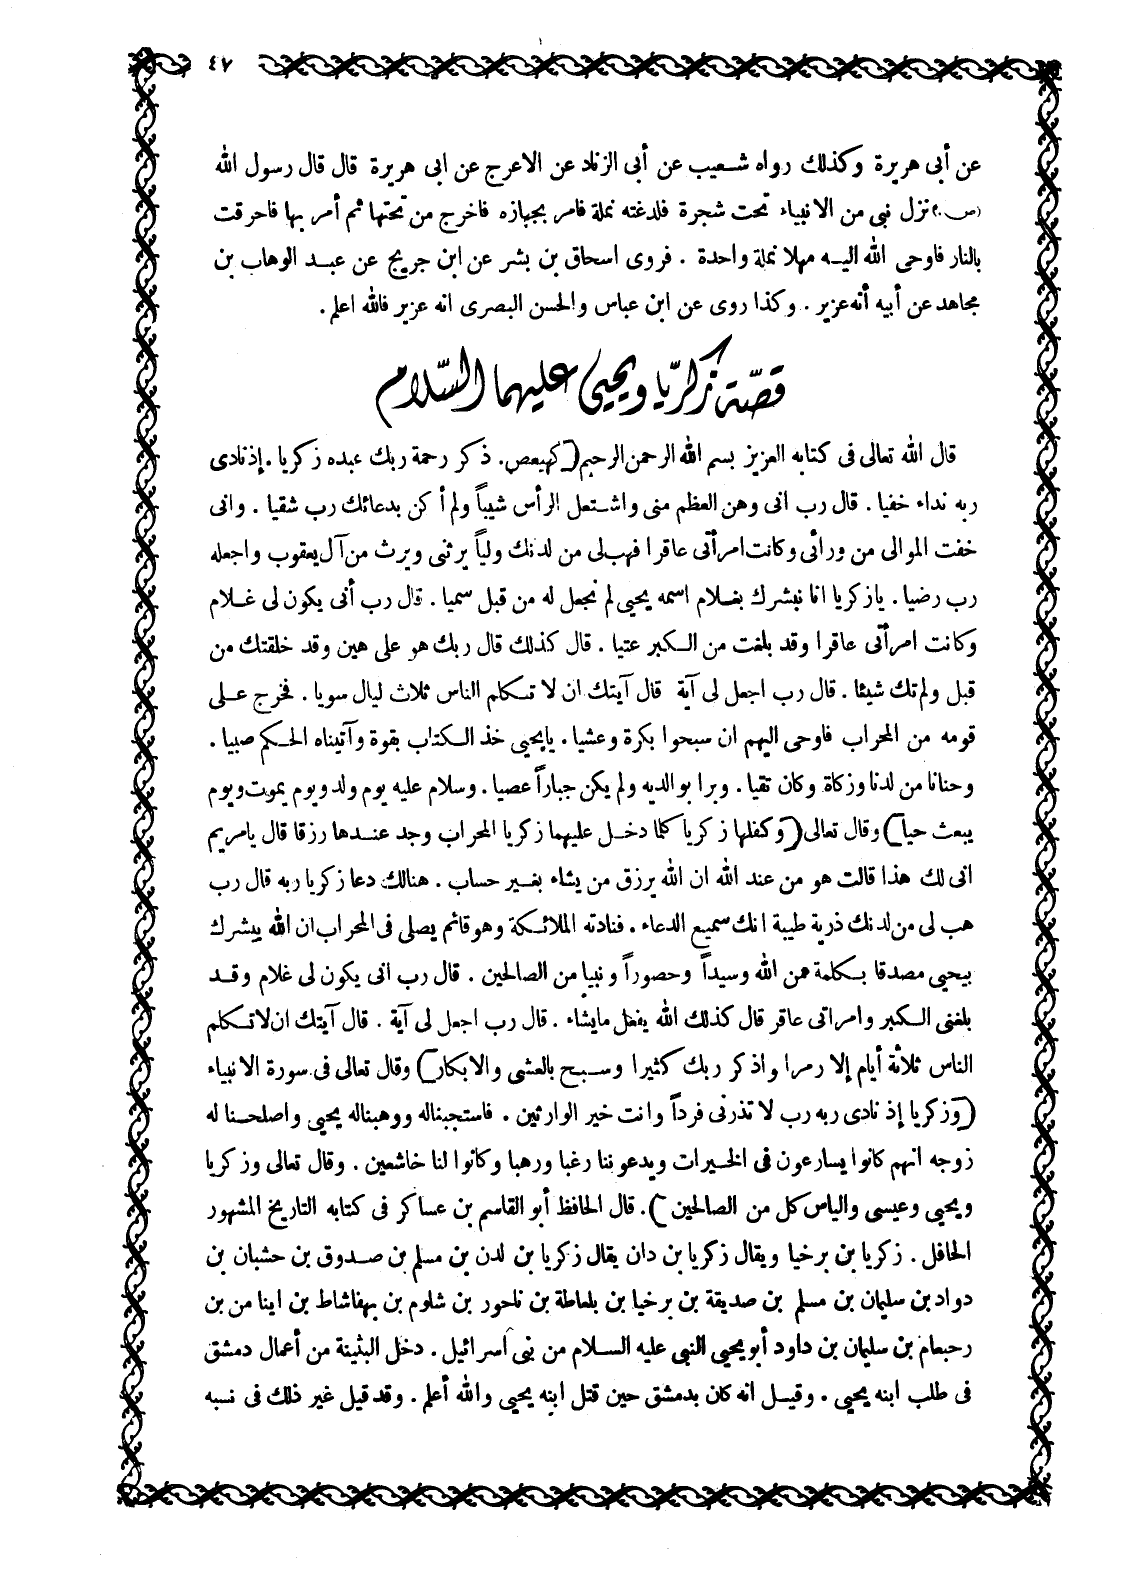 ٤٧
عن أبى هريرة وكذلك رواه شعيب عن أبى الزناد عن الاعرج عن ابى هريرة قال قال رسول الله
(ص.) نزل نبى من الانبياء تحت شجرة فلدغته نملة فامر بجهازه فاخرج من تحتها ثم أمر بها فاحرقت
بالنار فاوحى الله اليه مهلا نملة واحدة . فروى اسحاق بن بشر عن ابن جريج عن عبد الوهاب بن
مجاهد عن أبيه أنه عزير . وكذا روى عن ابن عباس والحسن البصرى انه عزير فالله اعلم .
قصّة زكريّا ويحيى عليهما السّلام
قال الله تعالى فى كتابه العزيز بسم الله الرحمن الرحيم (كهيعص. ذكر رحمة ربك عبده زكريا. إذ نادى
ربه نداء خفيا . قال رب انى وهن العظم منى واشتعل الرأس شيباً ولم أكن بدعائك رب شقيا . وانى
خفت الموالى من ورائى وكانت امرأتى عاقرا فهب لى من لدنك ولياً يرثنى ويرث من آل يعقوب واجعله
رب رضيا . يازكريا انا نبشرك بغلام اسمه يحيى لم نجعل له من قبل سميا . قال رب أنى يكون لى غلام
وكانت امرأتى عاقرا وقد بلغت من الكبر عتيا . قال كذلك قال ربك هو على هين وقد خلقتك من
قبل ولم تك شيئا . قال رب اجعل لى آية قال آيتك ان لا تكلم الناس ثلاث ليال سويا . فخرج على
قومه من المحراب فاوحى اليهم ان سبحوا بكرة وعشيا. يايحيى خذ الكتاب بقوة وآتيناه الحكم صبيا .
وحنانا من لدنا وزكاة وكان تقيا . وبرا بوالديه ولم يكن جباراً عصيا . وسلام عليه يوم ولد ويوم يموت ويوم
يبعث حيا) وقال تعالى (وكفلها زكريا كلما دخل عليهما زكريا المحراب وجد عندها رزقا قال يامريم
انى لك هذا قالت هو من عند الله ان الله يرزق من يشاء بغير حساب . هنالك دعا زكريا ربه قال رب
هب لى من لدنك ذرية طيبة انك سميع الدعاء . فنادته الملائكة وهو قائم يصلى فى المحراب ان الله يبشرك
بيحيى مصدقا بكلمة من الله وسيداً وحصوراً ونبيا من الصالحين . قال رب انى يكون لى غلام وقد
بلغنى الكبر وامراتى عاقر قال كذلك الله يفعل مايشاء . قال رب اجعل لى آية . قال آيتك ان لا تكلم
الناس ثلاثة أيام إلا رمزا واذكر ربك كثيرا وسبح بالعشى والابكار) وقال تعالى فى سورة الانبياء
(وزكريا إذ نادى ربه رب لا تذرنى فرداً وانت خير الوارثين . فاستجبناله ووهبناله يحيى واصلحنا له
زوجه انهم كانوا يسارعون فى الخيرات ويدعوننا رغبا ورهبا وكانوا لنا خاشعين . وقال تعالى وزكريا
ويحيى وعيسى والياس كل من الصالحين ). قال الحافظ أبو القاسم بن عساكر فى كتابه التاريخ المشهور
الحافل . زكريا بن برخيا ويقال زكريا بن دان يقال زكريا بن لدن بن مسلم بن صدوق بن حشبان بن
دواد بن سليمان بن مسلم بن صديقة بن برخيا بن بلعاطة بن ناحور بن شلوم بن بهفاشاط بن اينا من بن
رحبعام بن سليمان بن داود أبو يحيى النبى عليه السلام من بنى اسرائيل . دخل البثينة من أعمال دمشق
فى طلب ابنه يحيى . وقيل انه كان بدمشق حين قتل ابنه يحيى والله أعلم . وقد قيل غير ذلك فى نسبه